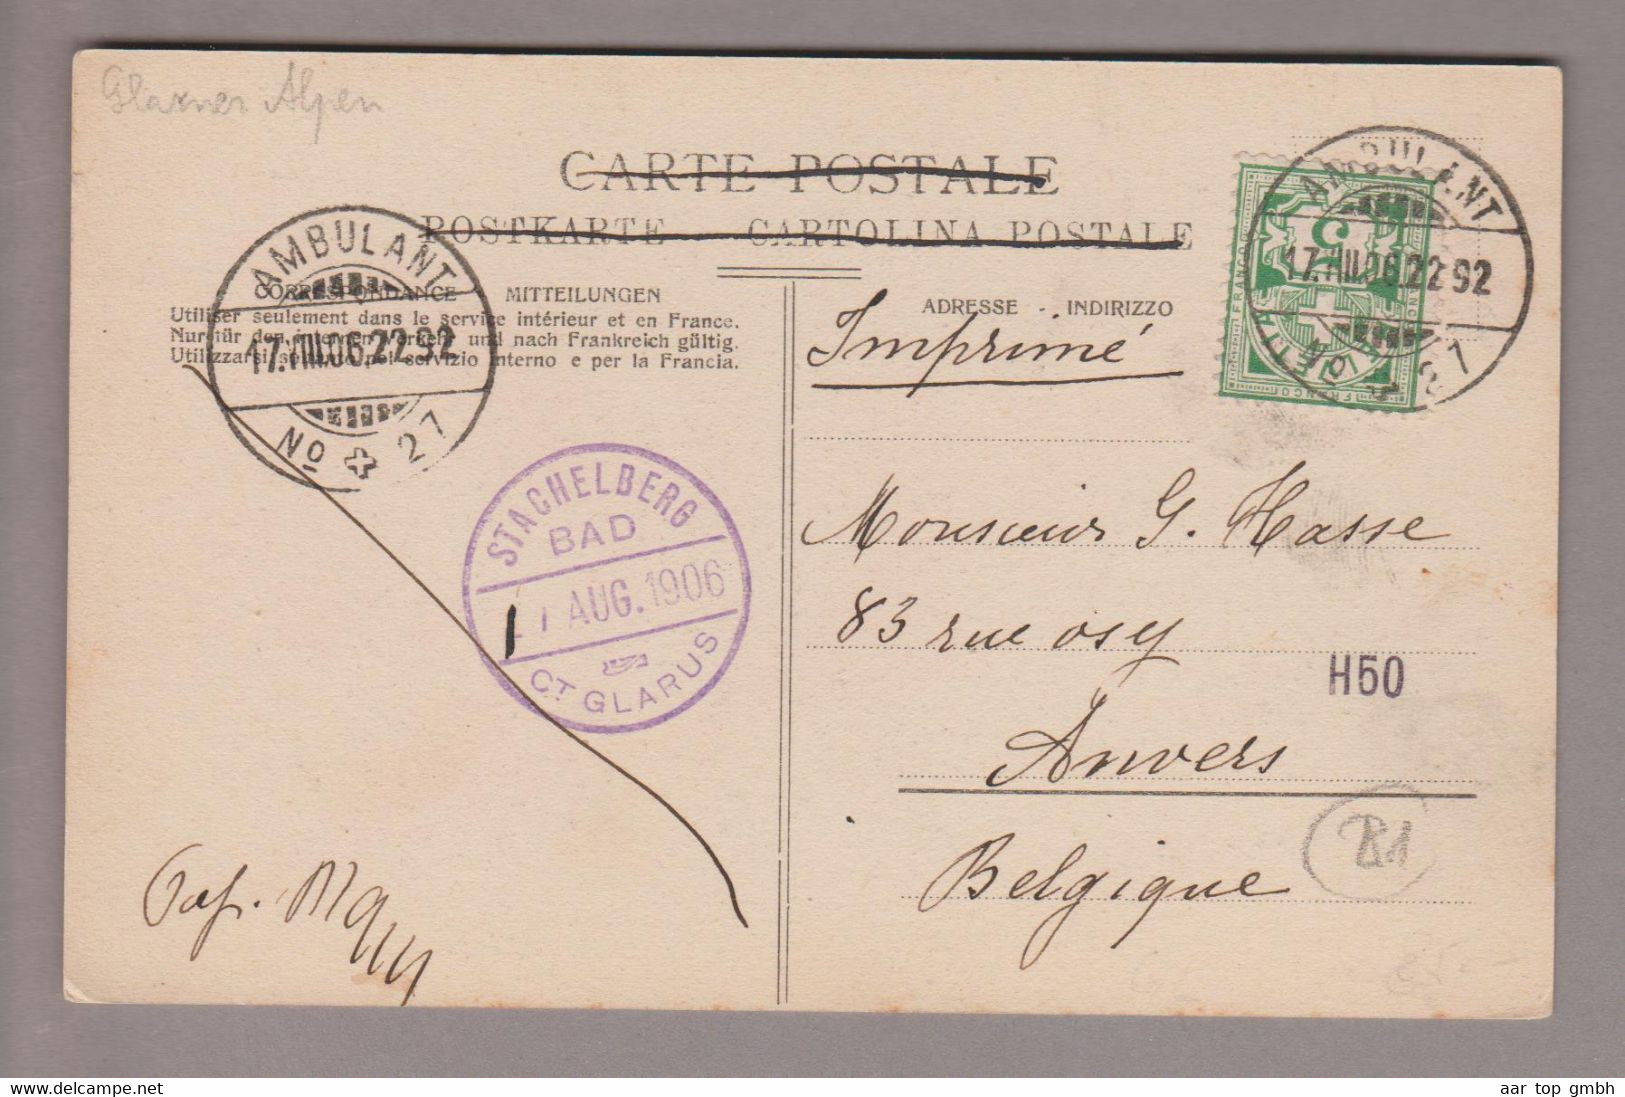 Glarner Alpen
CARTE POSTALE
POSTKARTE CARTOLINA POSTALE
CORRESPONDANCE MITTEILUNGEN
Utiliser seulement dans le service intérieur et en France.
Nur für den internen Verkehr und nach Frankreich gültig.
Utilizzarsi soltanto pel servizio interno e per la Francia.
ADRESSE - INDIRIZZO
AMBULANT
17.VIII.06.22 92
No 27
AMBULANT
17.VIII.06.22 92
27
5
FRANCO
Imprimé
STACHELBERG
BAD
17 AUG. 1906
CT GLARUS
Monsieur G. Hasse
83 rue osy
H50
Anvers
Belgique
B1
aar top gmbh
delcampe.net